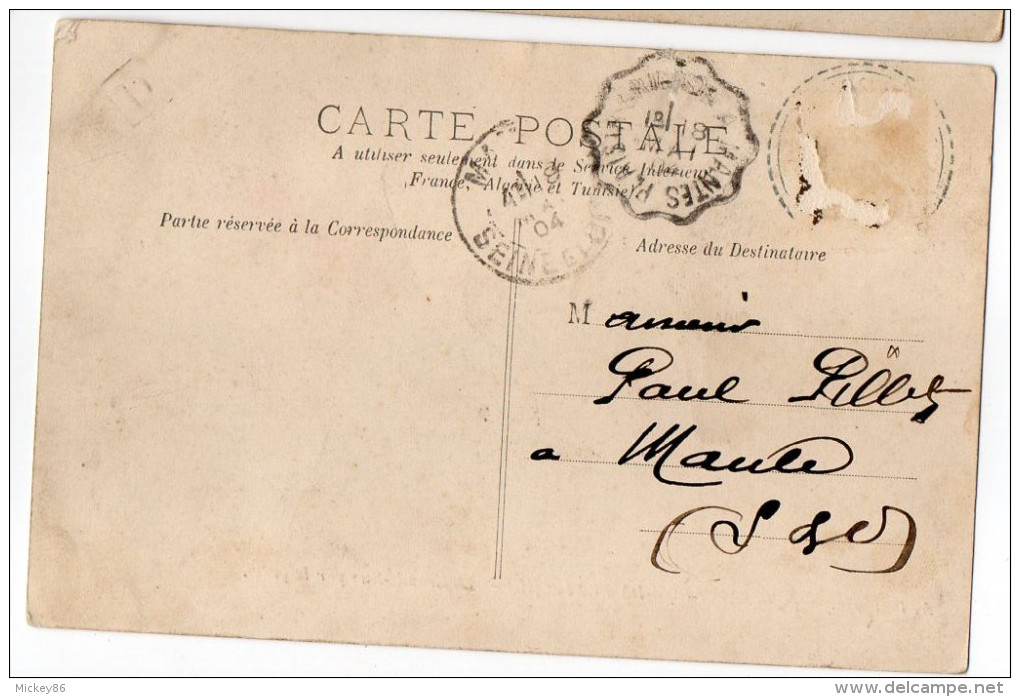 CARTE POSTALE
A utiliser seulement dans le Service Intérieur
(France, Algérie et Tunisie)
Partie réservée à la Correspondance
Adresse du Destinataire
Monsieur
Paul Pillet
a Maule
(S & O)
04
SEINE ET
PLAISIR GRIGNON A MANTES
Mickey86
www.delcampe.net